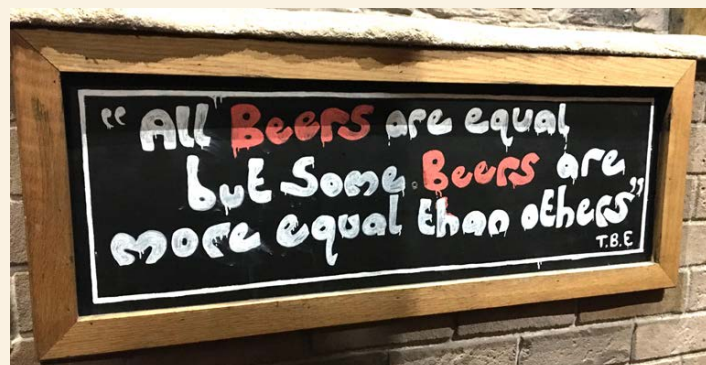 “All Beers are equal
but Some Beers are
more equal than others”
T.B.E